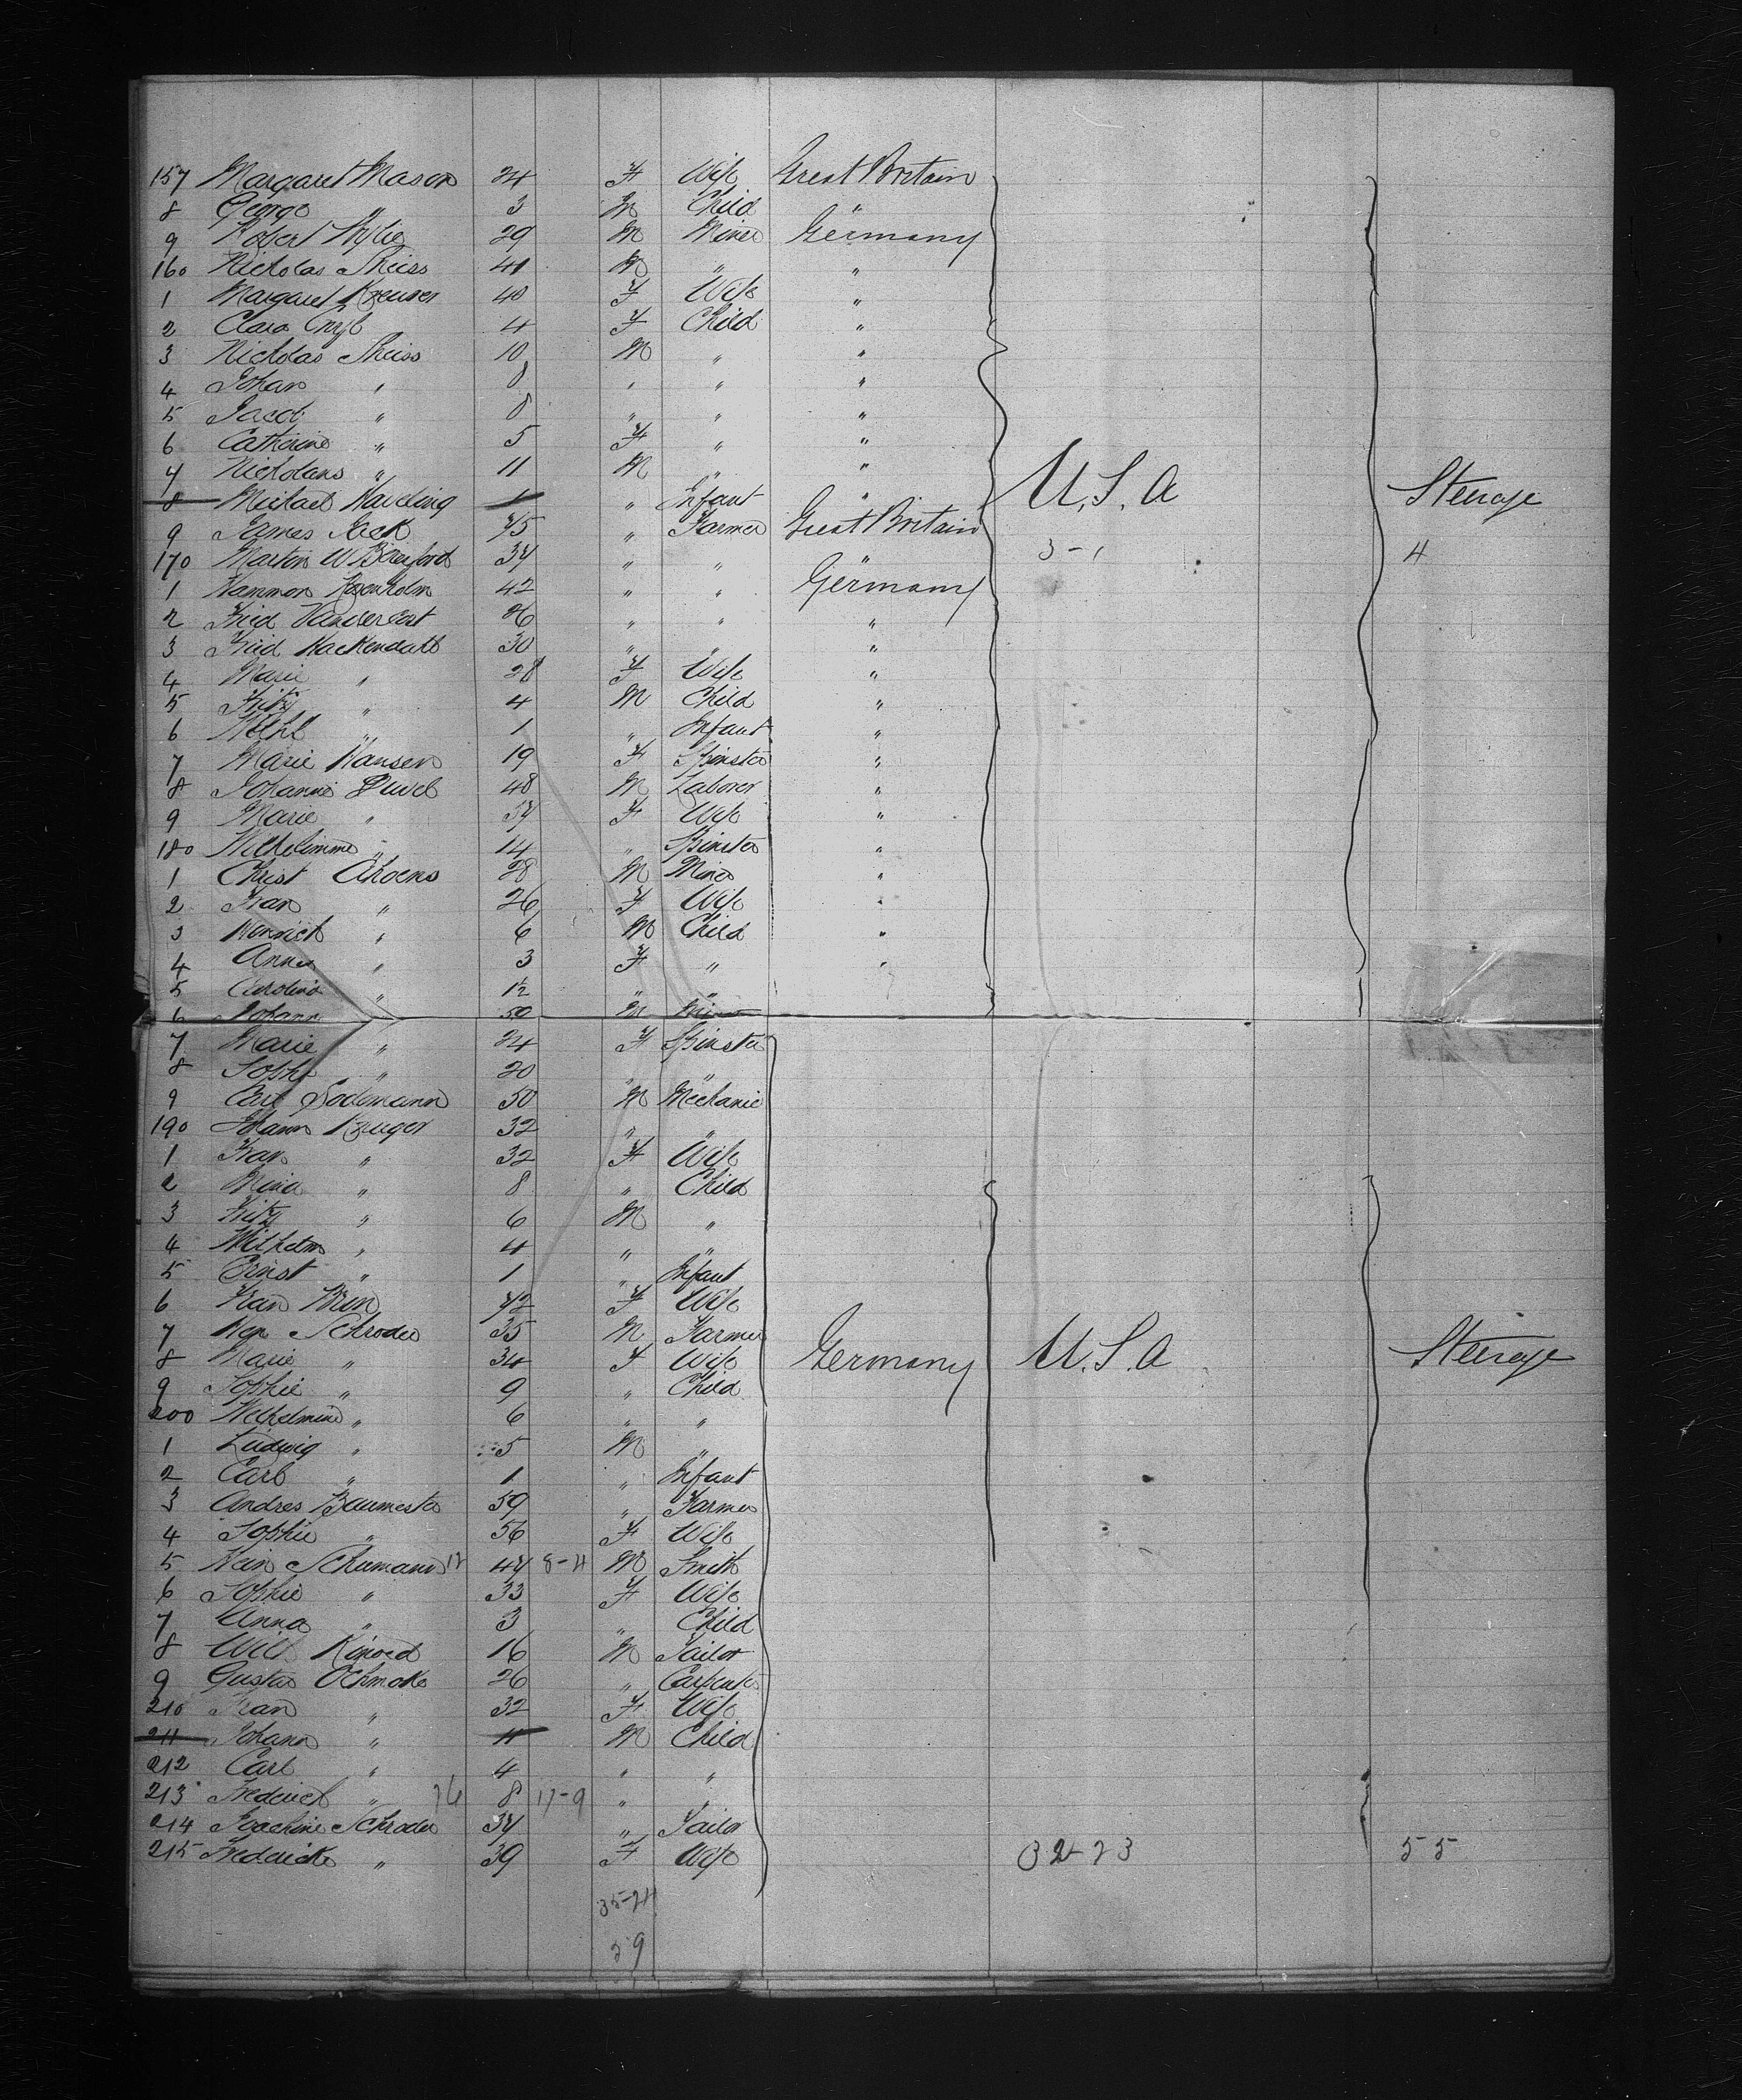 157 Margaret Mason 24 F Wife Great Britain
8 George " 3 M Child "
9 Robert Wylie 29 M Miner Germany
160 Nicholas Theiss 41 M " "
1 Margaret Kreuser 40 F Wife "
2 Clara 4 F Child "
3 Nicholas Theiss 10 M " "
4 Johan " 8 " " "
5 Jacob " 8 " " "
6 Catherine " 5 F " "
7 Nicholaus " 11 M " "
8 Michael 1 " Infant " U.S.A Steerage
9 James Jack 45 " Farmer Great Britain
170 Martin W Beresford 37 " " " 3-1 4
1 Hammon 42 " " Germany
2 Fried 26 " " "
3 Fried Hackendahl 30 " " "
4 Marie " 28 F Wife "
5 Fritz " 4 M Child "
6 Wilhl " 1 " Infant "
7 Marie Hansen 19 F Spinster "
8 Johannes 48 M Laborer "
9 Marie " 57 F Wife "
180 Wilhelimine " 14 " Spinster "
1 Christ Ahrens 28 M Miner "
2 Frau " 26 F Wife "
3 Heinrich " 6 M Child "
4 Anna " 3 F " "
5 Carolina " 1½ " "
6 Johann 50 M Miner
7 Marie " 24 F Spinster
8 Soph " 20 " "
9 Carl Sodemann 50 M Mechanic
190 Johann Kruger 32 " "
1 Frau " 32 F Wife
2 Mina " 8 " Child
3 Fritz " 6 M "
4 Wilhelm " 4 " "
5 Ernst " 1 " Infant
6 Frau 42 F Wife
7 Hen Schroder 35 M Farmer
8 Marie " 34 F Wife Germany U.S.A Steerage
9 Sophie " 9 " Child
200 Wilhelmine " 6 " "
1 Ludwig " 5 M "
2 Carl " 1 " Infant
3 Andres Baumester 59 " Farmer
4 Sophie " 56 F Wife
5 Hein Schumann 12 47 8-4 M Smith
6 Sophie " 33 F Wife
7 Anna " 3 " Child
8 Will 16 M Tailor
9 Gustav 26 " Carpenter
210 Frau " 32 F Wife
211 Johann " 11 M Child
212 Carl " 4 " "
213 Frederick " 26 8 17-9 "
214 Joachim Schroder 37 " Tailor
215 Fredericke " 39 F Wife 32-23 55
35-24
59